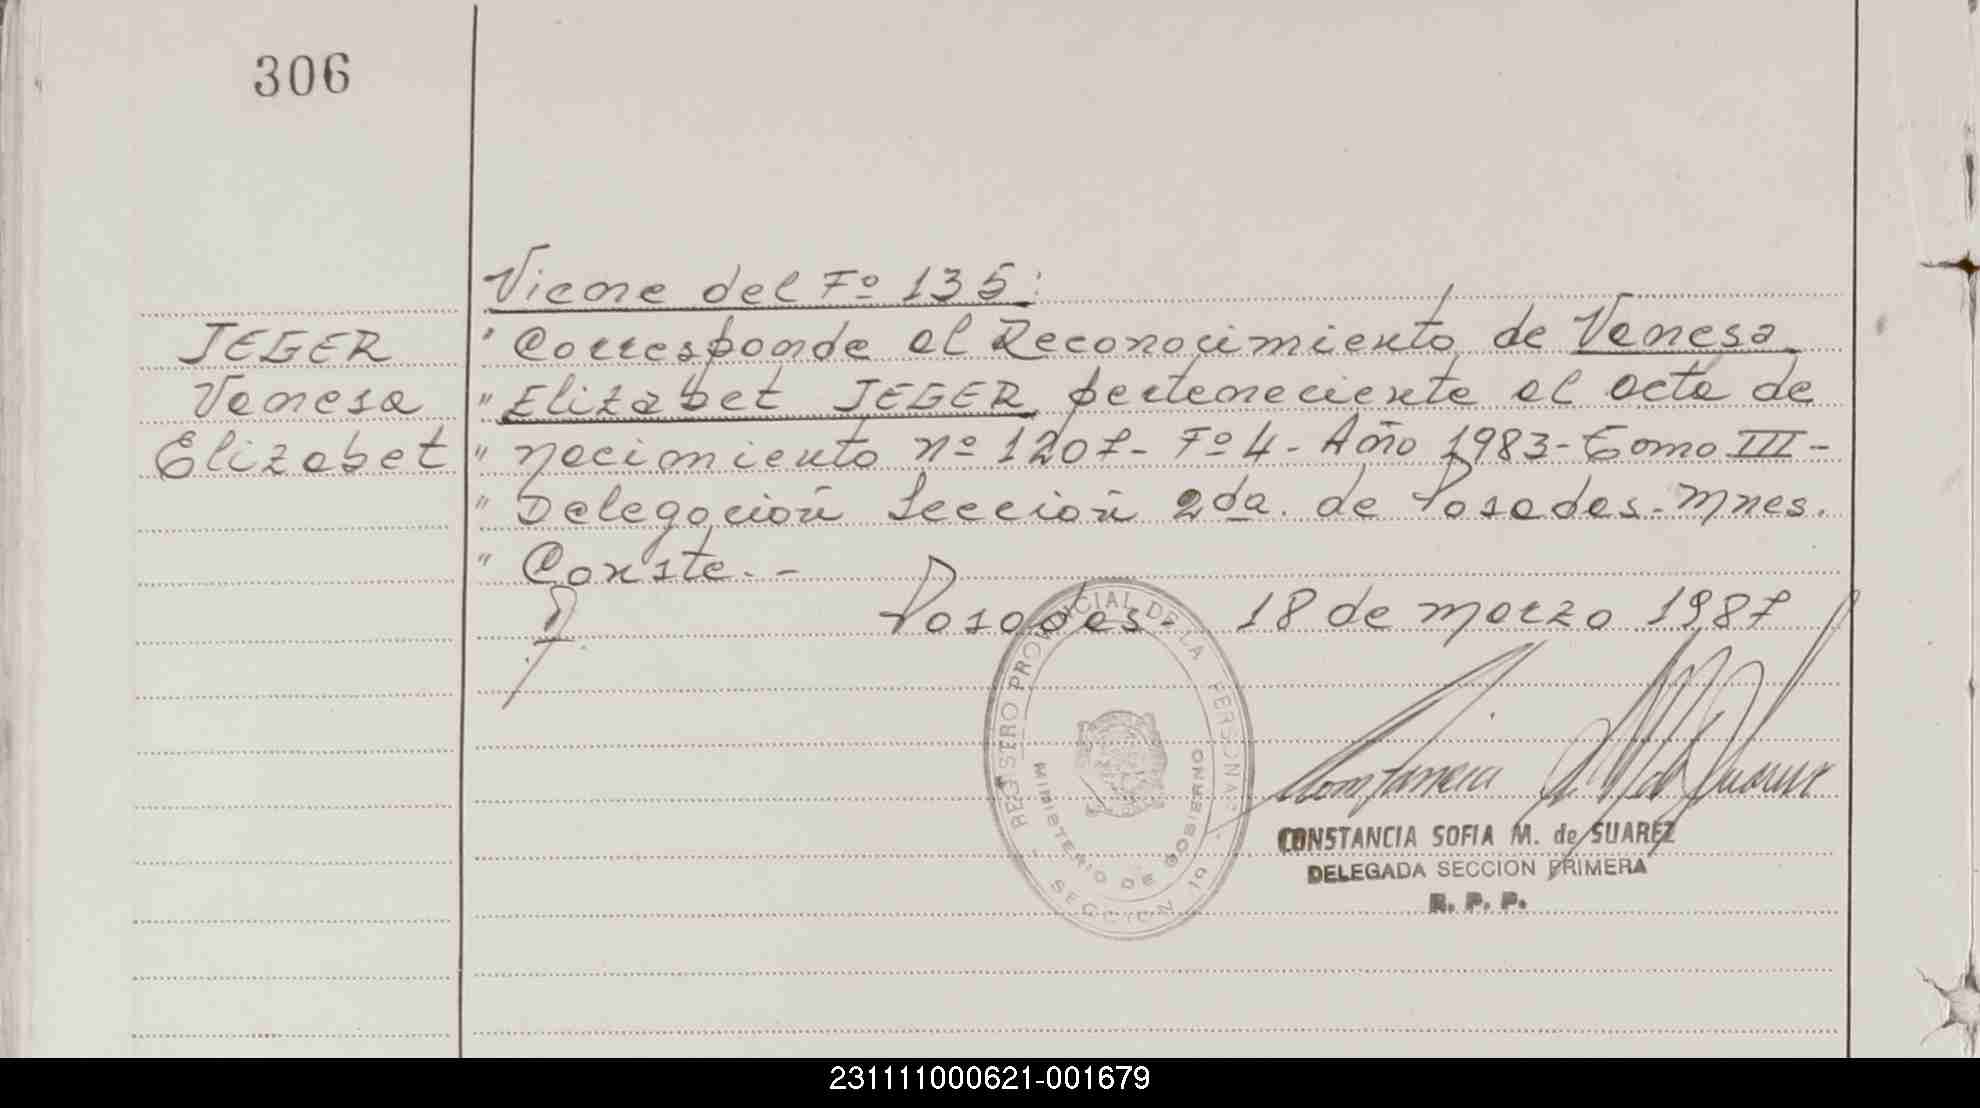 306
Viene del Fº 135:
JEGER
" Corresponde al Reconocimiento de Vanesa
Vanesa
" Elizabet JEGER perteneciente al acta de
Elizabet
" nacimiento nº 1207- Fº 4- Año 1983- Tomo III-
" Delegación Sección 2da. de Posadas- Mnes.
" Conste.-
Posadas- 18 de marzo 1987
REGISTRO PROVINCIAL DE LA PERSONAS
MINISTERIO DE GOBIERNO
SECCION 1ª
Constancia S. M. de Suarez
CONSTANCIA SOFIA M. de SUAREZ
DELEGADA SECCION PRIMERA
R. P. P.
231111000621-001679